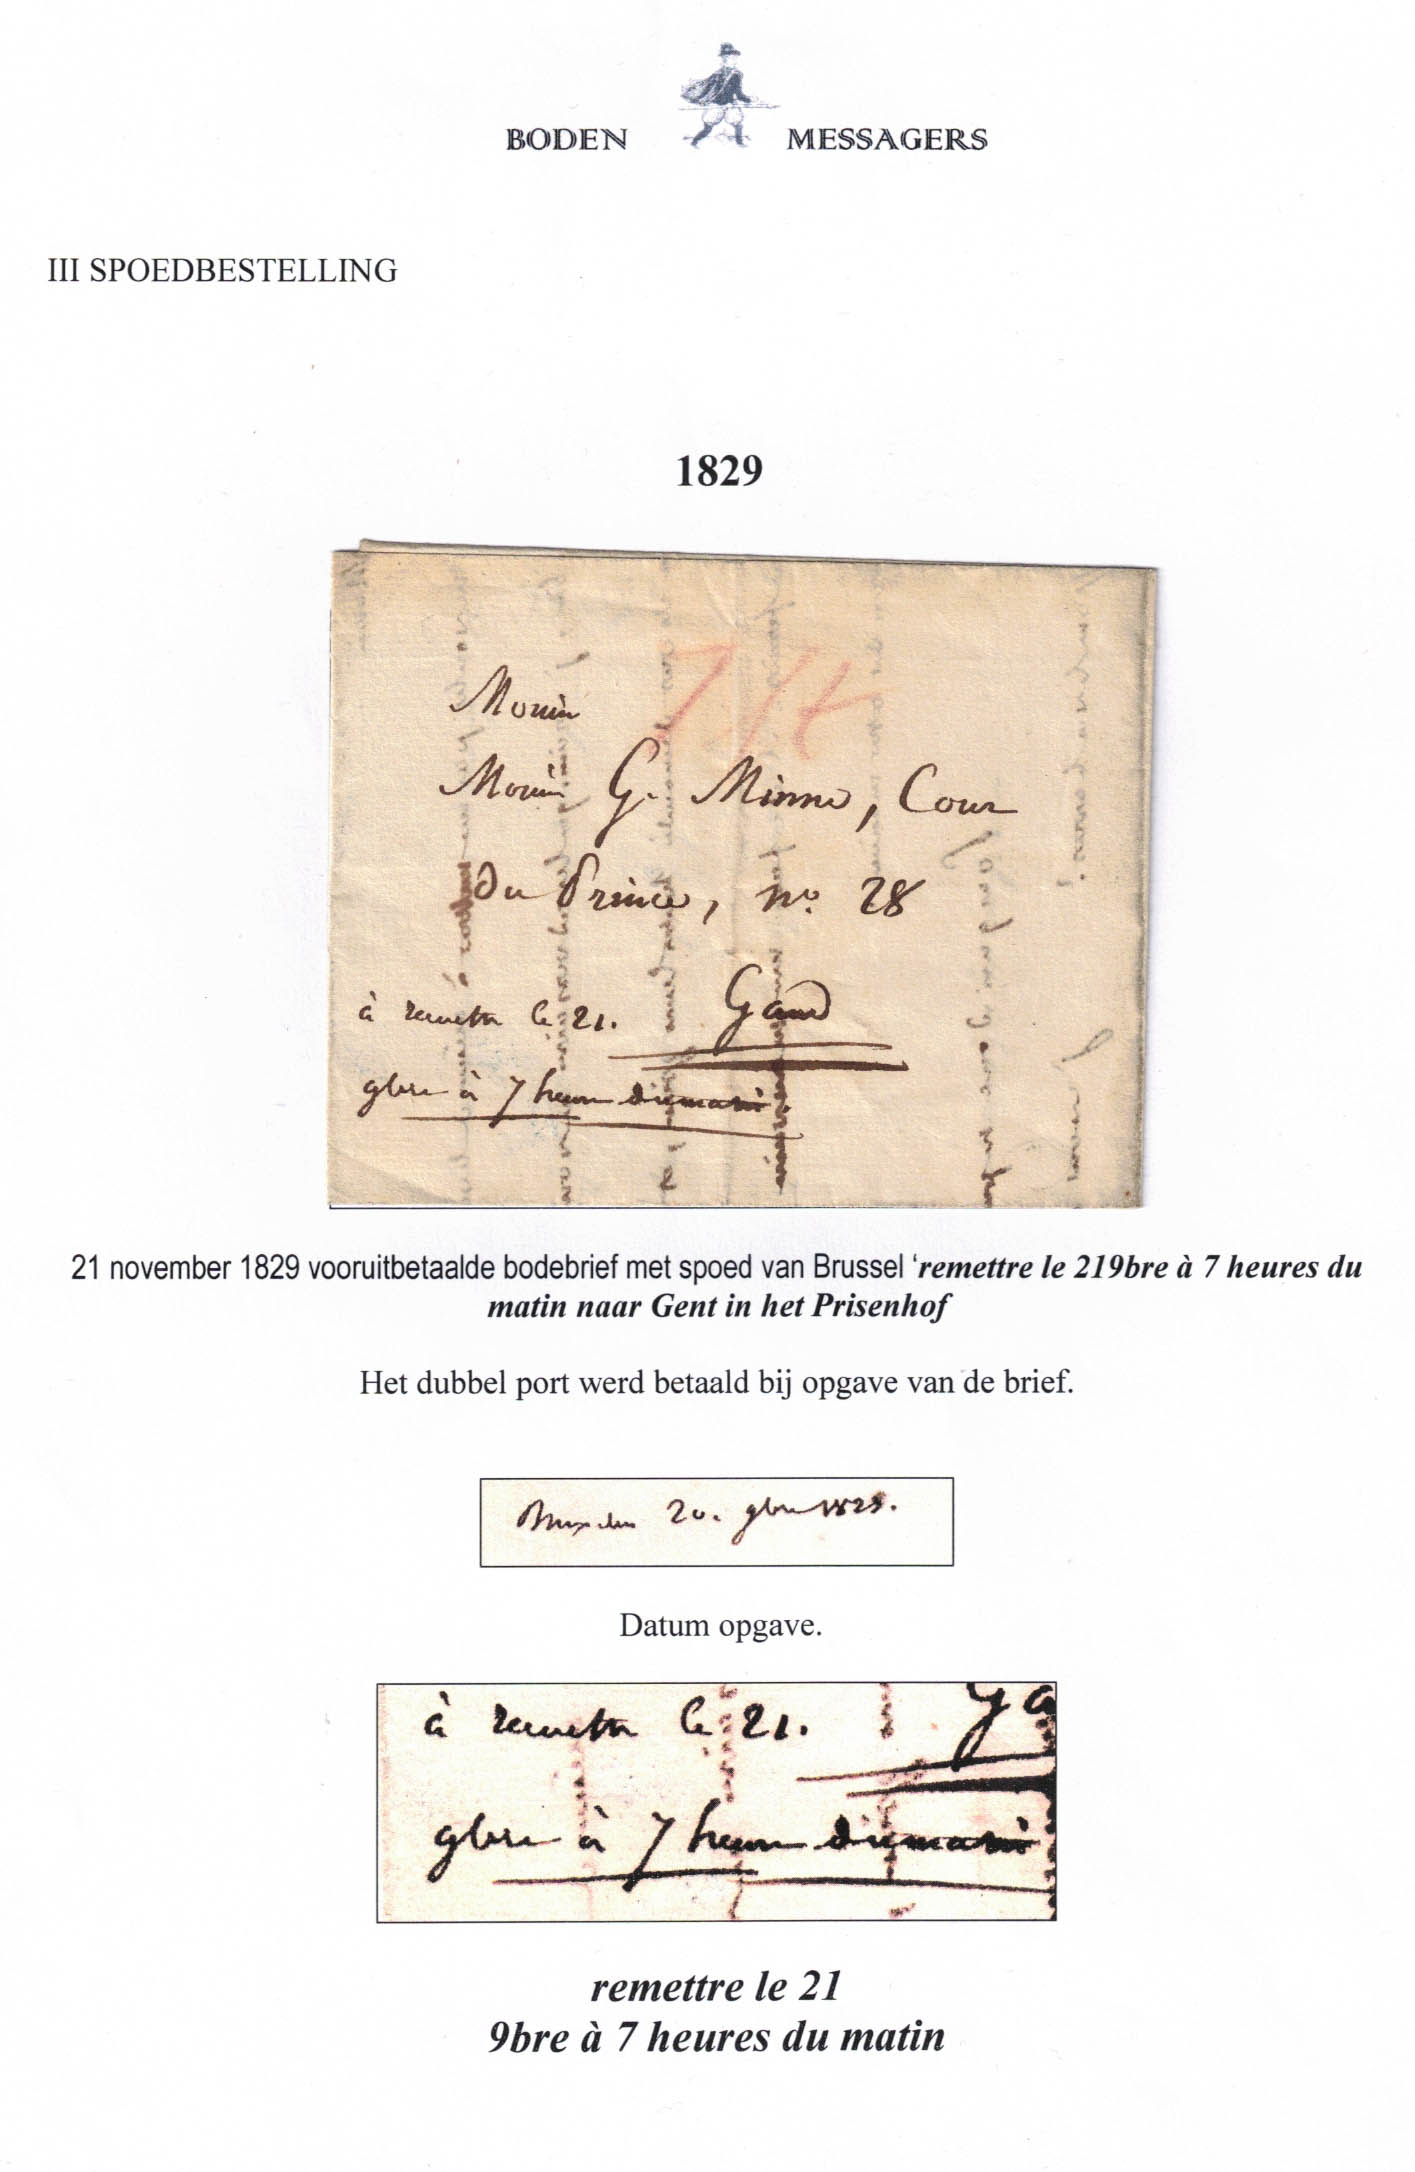 BODEN MESSAGERS
III SPOEDBESTELLING
1829
Monsin
Monsin G. Minne, Cour
du Prince, no. 28
Gand
à remettre le 21.
9bre à 7 heures du matin.
21 november 1829 vooruitbetaalde bodebrief met spoed van Brussel ‘remettre le 219bre à 7 heures du
matin naar Gent in het Prisenhof
Het dubbel port werd betaald bij opgave van de brief.
Bruxelles 20. 9bre 1829.
Datum opgave.
à remettre le 21. Ga
9bre à 7 heures du matin
remettre le 21
9bre à 7 heures du matin